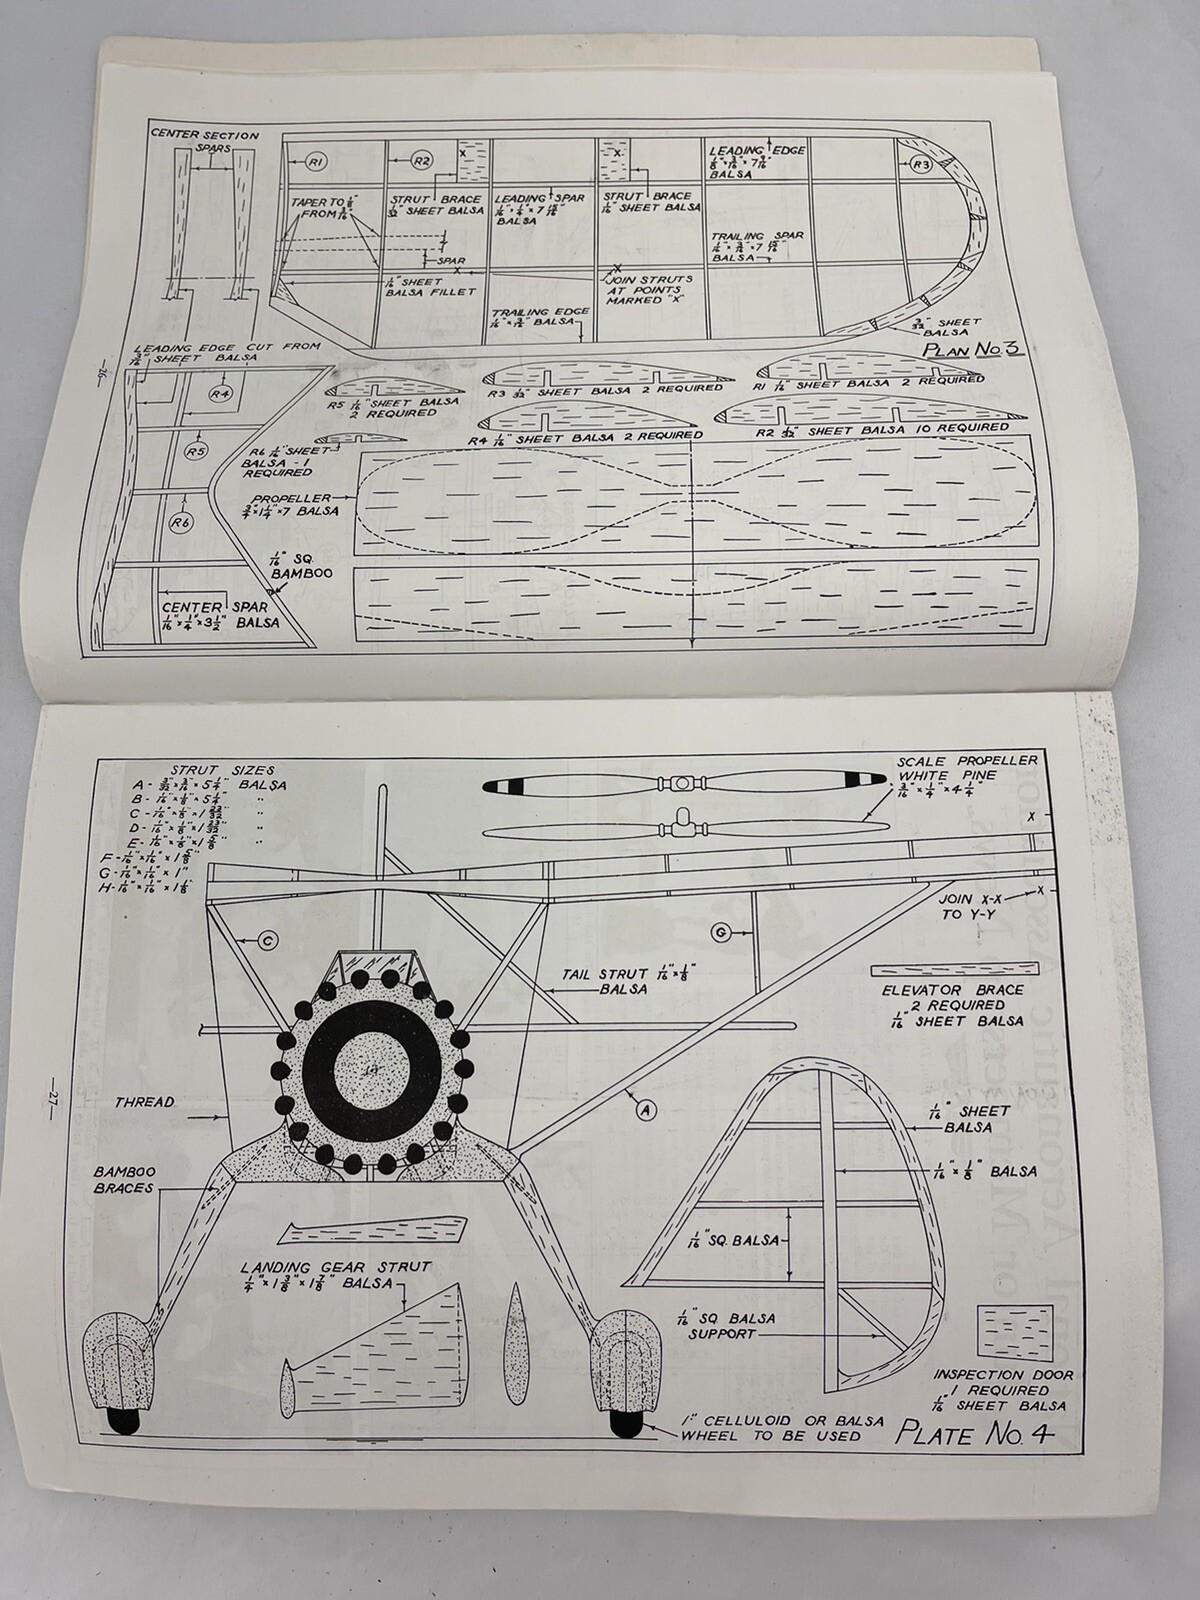 CENTER SECTION
SPARS
R1
R2
X
X
LEADING EDGE
1/8" x 3/16" x 7 9/16"
BALSA
R3
TAPER TO 1/8"
FROM 3/16"
STRUT BRACE
1/32" SHEET BALSA
LEADING SPAR
BALSA
STRUT BRACE
1/16" SHEET BALSA
SPAR
TRAILING SPAR
BALSA
X
X
1/16" SHEET
BALSA FILLET
JOIN STRUTS
AT POINTS
MARKED "X"
TRAILING EDGE
1/16" x 3/16" BALSA
3/32" SHEET
BALSA
PLAN NO. 3
LEADING EDGE CUT FROM
3/16" SHEET BALSA
—26—
R4
R5
R6
R5 1/16" SHEET BALSA
2 REQUIRED
R3 1/32" SHEET BALSA 2 REQUIRED
R1 1/16" SHEET BALSA 2 REQUIRED
R4 1/16" SHEET BALSA 2 REQUIRED
R2 1/32" SHEET BALSA 10 REQUIRED
R6 1/16" SHEET
BALSA - 1
REQUIRED
PROPELLER
3/4" x 1 1/4" x 7 BALSA
1/16" SQ.
BAMBOO
CENTER SPAR
1/16" x 1/4" x 3 1/2" BALSA
STRUT SIZES
A - 3/32" x 3/16" x 5 1/4" BALSA
B - 1/16" x 1/8" x 5 1/4" "
C - 1/16" x 1/8" x 1 23/32" "
D - 1/16" x 1/8" x 1 23/32" "
E - 1/16" x 1/8" x 1 5/8" "
F - 1/16" x 1/16" x 1 5/8"
G - 1/16" x 1/16" x 1"
H - 1/16" x 1/16" x 1 1/8"
SCALE PROPELLER
WHITE PINE
3/16" x 1/4" x 4 1/4"
X
X
JOIN X-X
TO Y-Y
C
G
TAIL STRUT 1/16" x 1/8"
BALSA
ELEVATOR BRACE
2 REQUIRED
1/16" SHEET BALSA
THREAD
—27—
A
1/16" SHEET
BALSA
1/16" x 1/8" BALSA
BAMBOO
BRACES
1/16" SQ. BALSA
LANDING GEAR STRUT
1/4" x 1 3/8" x 1 7/8" BALSA
1/16" SQ. BALSA
SUPPORT
INSPECTION DOOR
1 REQUIRED
1/16" SHEET BALSA
1" CELLULOID OR BALSA
WHEEL TO BE USED
PLATE NO. 4